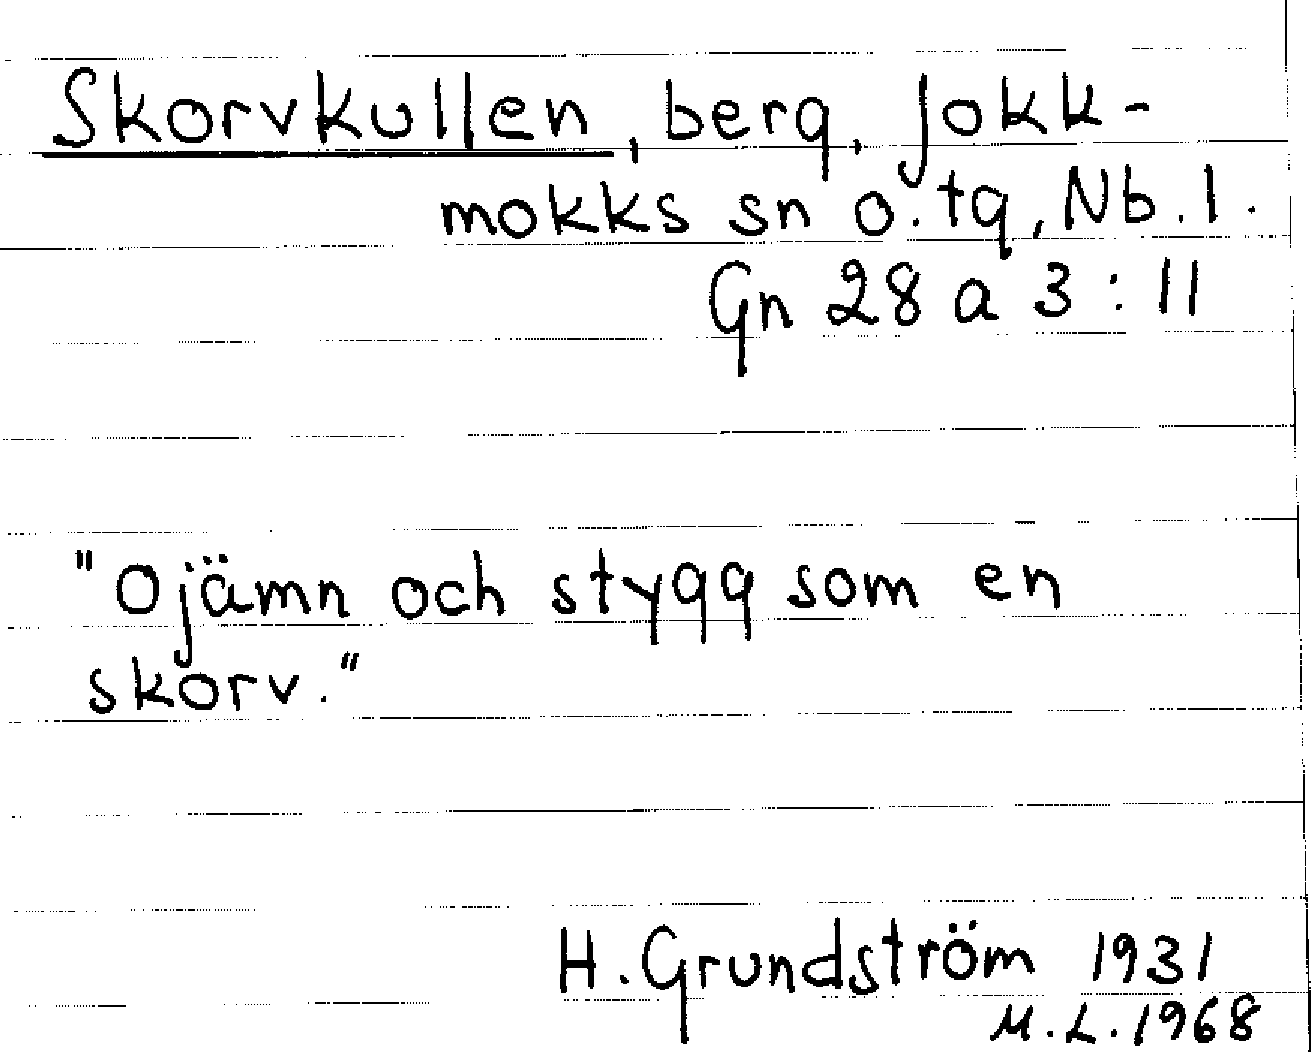 Skorvkullen, berg, Jokk-
mokks sn o. tg, Nb. l.
Gn 28 a 3:11
"Ojämn och stygg som en
skorv."
H. Grundström 1931
M.L. 1968